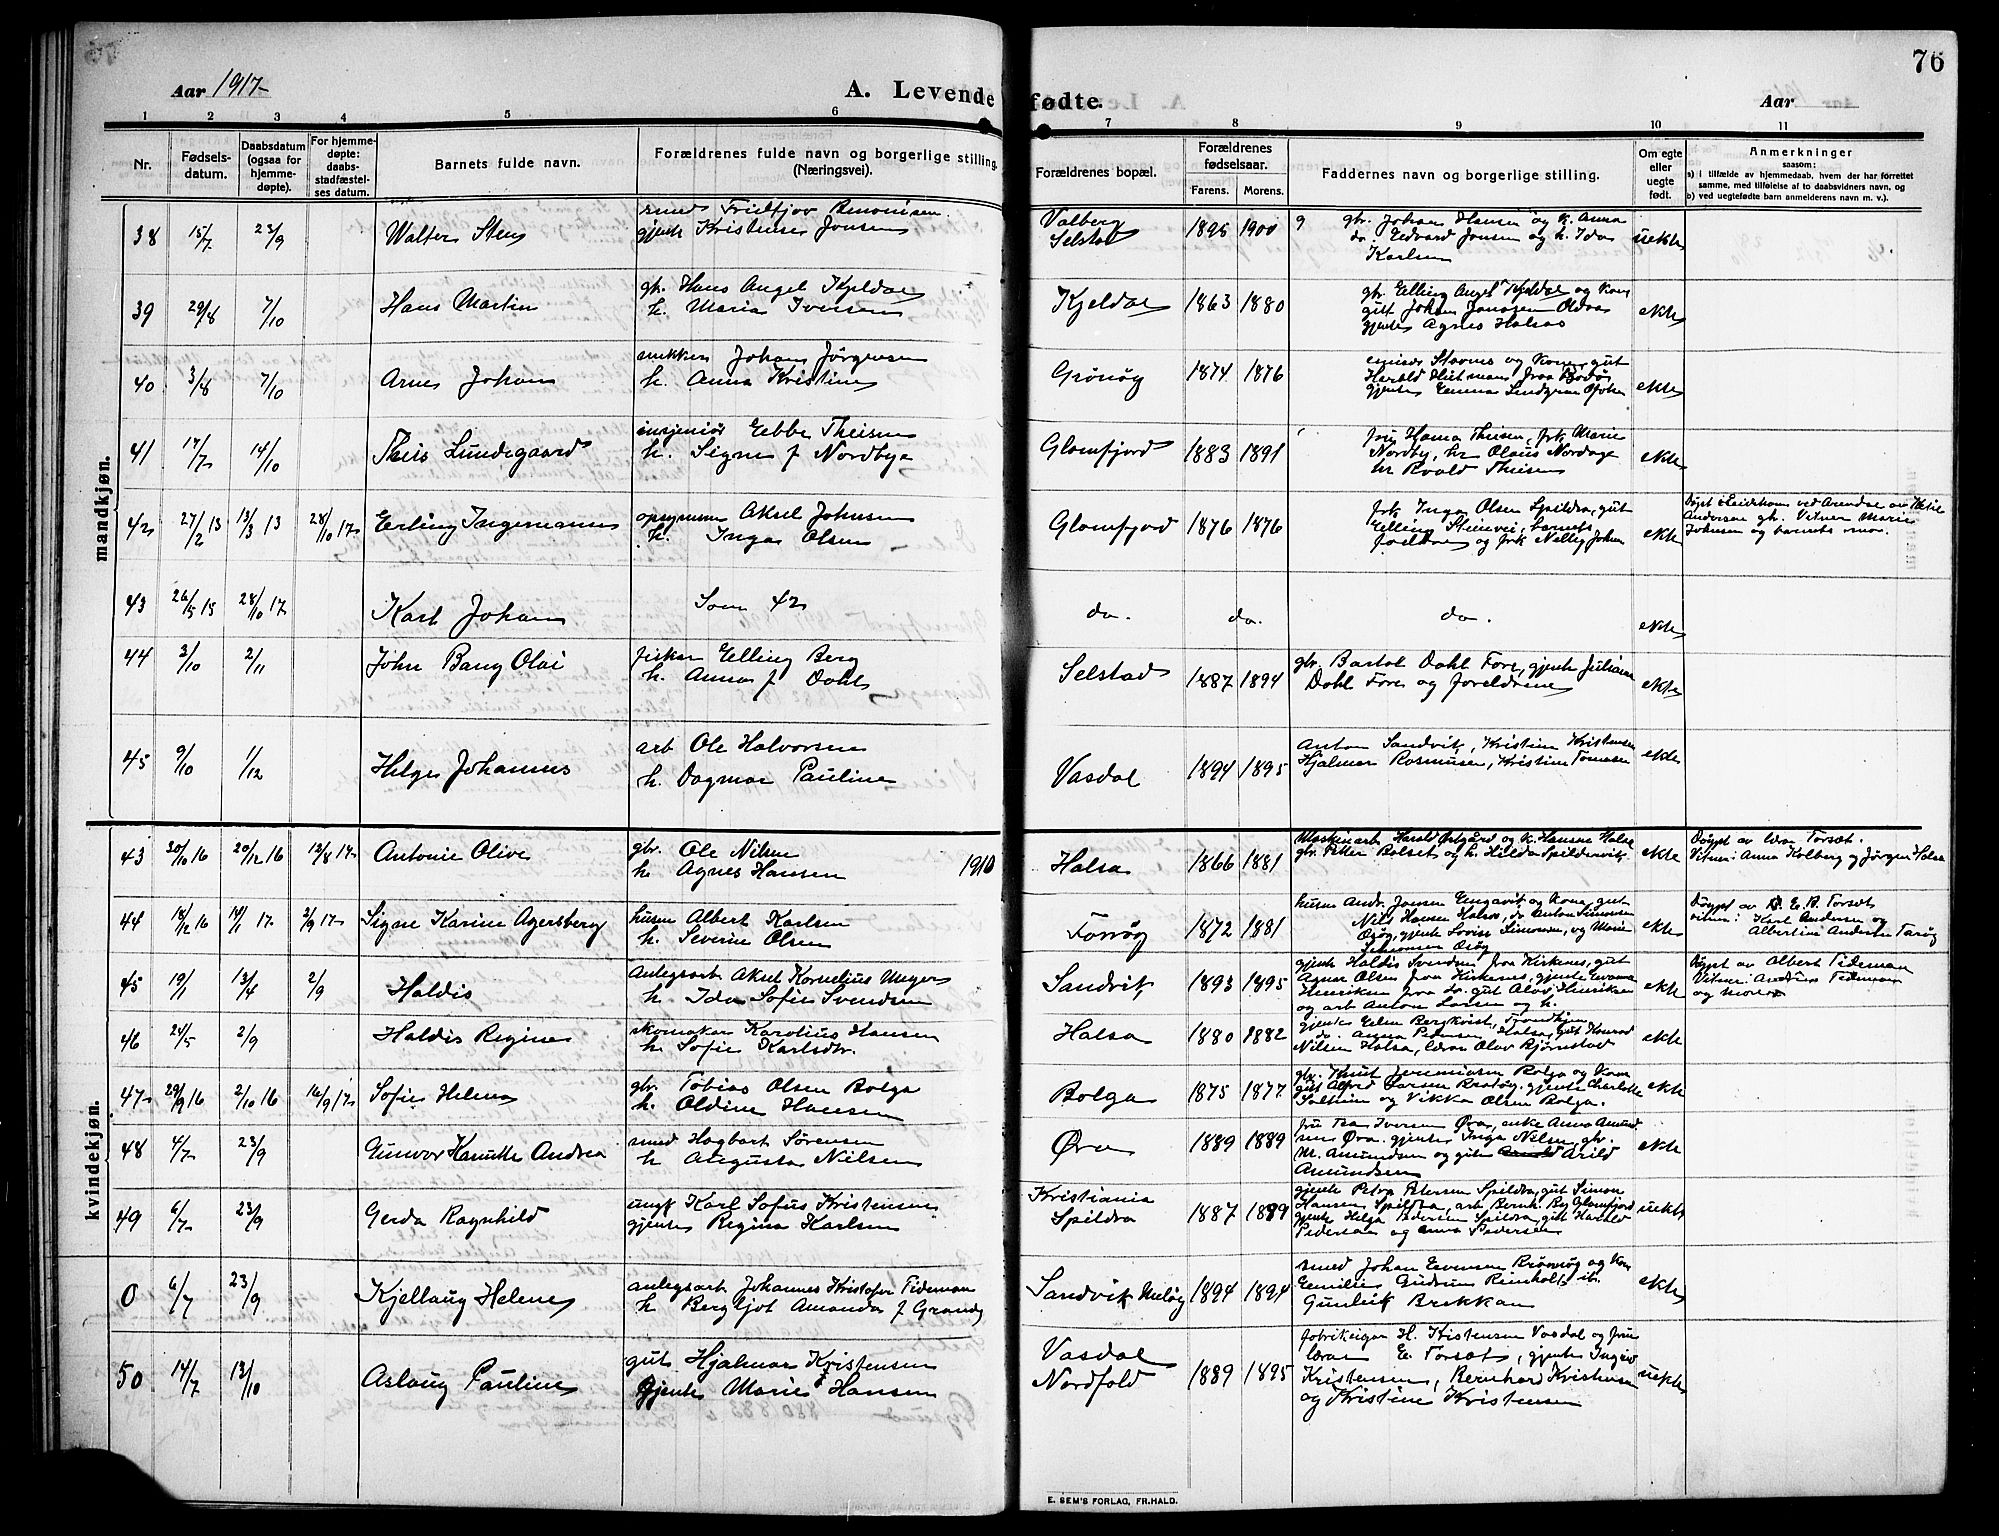 76
Aar 1917
A. Levende fødte.
Aar
1 2 3 4 5 6 7 8 9 10 11
Nr.
Fødselsdatum.
Daabsdatum (ogsaa for hjemmedøpte).
For hjemmedøpte: daabsstadfæstelses datum.
Barnets fulde navn.
Forældrenes fulde navn og borgerlige stilling. (Næringsvei).
Forældrenes bopæl.
Forældrenes fødselsaar.
Farens. Morens.
Faddernes navn og borgerlige stilling.
Om egte eller uegte født.
Anmerkninger
saasom:
a) i tilfælde av hjemmedaab, hvem der har forrettet
samme, med tilføielse af to daabsvidners navn, og
b) ved uegtefødte barn anmelderens navn m. v.).
mandkjøn.
38 15/7 23/9 Walter Sten
smed Fridtjov
gjente Kristense Jonsen
Valberg
Selstad
1895 1900
gbr. Johan Hansen og k. Anna
do. Edvard Jonsen og h. Ida
Karlsen
uekte
39 29/8 7/10 Hans Martin
gbr. Hans Angel Kjeldal
h. Maria Iversen
Kjeldal 1863 1880
gbr Elling Angel Kjeldal og kone
gut Johan
gjente Agnes Halsa
ekte
40 3/8 7/10 Arne Johan
snekker Johan Jørgensen
h. Anna Kristine
Grønøy 1874 1876
Stavnes og kone, gut
Herald fraa Bodø,
gjente Emma Lindgren
ekte
41 17/7 14/10 Theis Lundegaard
insjeniør Ebbe Theisen
h. Signe f Nordbye
Glomfjord 1883 1891
fru Hanna Theisen, frk Marie
Nordby, hr Olaus Nordage
hr Roald Theisen
ekte
42 27/2 13 13/3 13 28/10 17 Erling Ingemann
opsynsm Aksel Johnsen
h. Inga Olsen
Glomfjord 1876 1876
frk Inga Olsen Spildra, gut
Elling Steinvei, barnets
foreldre og frk Nelly Johnsen
ekte
Døypt i ved Arendal av
Andersen gbr. Vitner Marie
Johnsen og barnets mor.
43 26/5 15 28/10 17 Karl Johan
Som 42
do. do. do.
ekte
44 3/10 2/11 John Bang Olai
fisker Elling Berg
h. Anna f Dahl
Selstad 1887 1894
gbr. Bartol Dahl Fore, gjente Juliane
Dahl Fore og foreldrene
ekte
45 9/10 1/12 Helge Johannes
arb Ole Halvorsen
h. Dagmar Pauline
Vasdal 1894 1895
Anton Sandvik, Kristine Kristensen
Hjalmar Rasmusen, Kristine Tomasen
ekte
kvindekjøn.
43 30/10 16 20/12 16 12/8 17 Antonie Olive
gbr. Ole Nilsen
h. Agnes Hansen 1910
Halsa 1866 1881
Maskinarb Harald Østgård og k. Hansine Halsa
gbr. Peter Bolset og h. Hilda Spildervik
ekte
Døypt av lærar Torsæt.
Vitner: Anna Kolberg og Jørgen Halsa
44 18/12 16 14/1 17 2/9 17 Signe Karine Agersberg
husm Albert Karlsen
h. Severine Olsen
Forrøy 1872 1881
husm Andr. Jonsen Engavik og kone, gut
Nils Hansen Halsa, do Anton Simonsen
Esøy, gjente Lovise Simonsen, og Marie
Simonsen Esøy
ekte
Døypt av E. B. Torsæt
vitner: Karl Andersen og
Albertine Andersen Tarøy
45 19/1 13/4 2/9 Haldis
anlegsarb Aksel Kornelius Meyer
h. Ida Sofie Svendsen
Sandvik 1893 1895
gjente Haldis Svendsen fraa Kirkenes, gut
Agnar Olsen fraa Kirkenes, gjente Emma
Henriksen fraa do. gut Olav Henriksen
og arb Anton Larsen og h.
ekte
Døypt av Albert Tideman
Vitner: Andrea Tideman
og mora
46 24/5 2/9 Haldis Regine
skomaker Karolius Hansen
h. Sofie Karlsdtr.
Halsa 1880 1882
gjente Ellen Bergkvist, Trondhjem
do. Anna Pedersen Halsa, gut Konrad
Nilsen Halsa, lærar Olav Bjørnstad
ekte
47 29/9 16 2/10 16 16/9 17 Sofie Helena
gbr. Tobias Olsen Bolga
h. Oldine Hansen
Bolga 1875 1877
gbr. Knut Jeremiassen Bolga og kone
gut Alfred Larsen gjente Charlotte
Solheim og Vikka Olsen Bolga.
ekte
48 4/7 23/9 Gunvor Hanette Andrea
smed Hagbart Sørensen
h Augusta Nilsen
Øra 1889 1889
fru Iversen Øra, enke Anna Amund
sens Øra. gjente Inga Nilsen, gbr.
M. Amundsen og gut Arild
Amundsen
ekte
49 6/7 23/9 Gerda Ragnhild
ungk Karl Sofus Kristensen
gjente Regina Karlsen
Kristiania
Spildra
1887 1889
gjente Petra Petersen Spildra, gut Simon
Hansen Spildra, arb Bernh. Glomfjord
gjente Helga Pedersen Spildra, gut Harald
Pedersen og Anna Pedersen
uekte
0 6/7 23/9 Kjellaug Helene
anlegsarb Johannes Kristofer Tideman
h Bergljot Amanda f Grandy
Sandvik Meløy 1894 1894
smed Johan Evensen og kone
Emilie, Gudrun Reinholtd,
Gunleik Brekkan
ekte
50 14/7 13/10 Aslaug Pauline
gut Hjalmar Kristensen
Gjente Marie Hansen
Vasdal
Nordfold
1889 1895
fabrikeigar H. Kristensen Vasdal og fru
lærar E. Torsæt, gjente Ingeb
Kristensen, Bernhard Kristensen
og Kristine Kristensen
uekte
E. SEM'S FORLAG, FR.HALD.